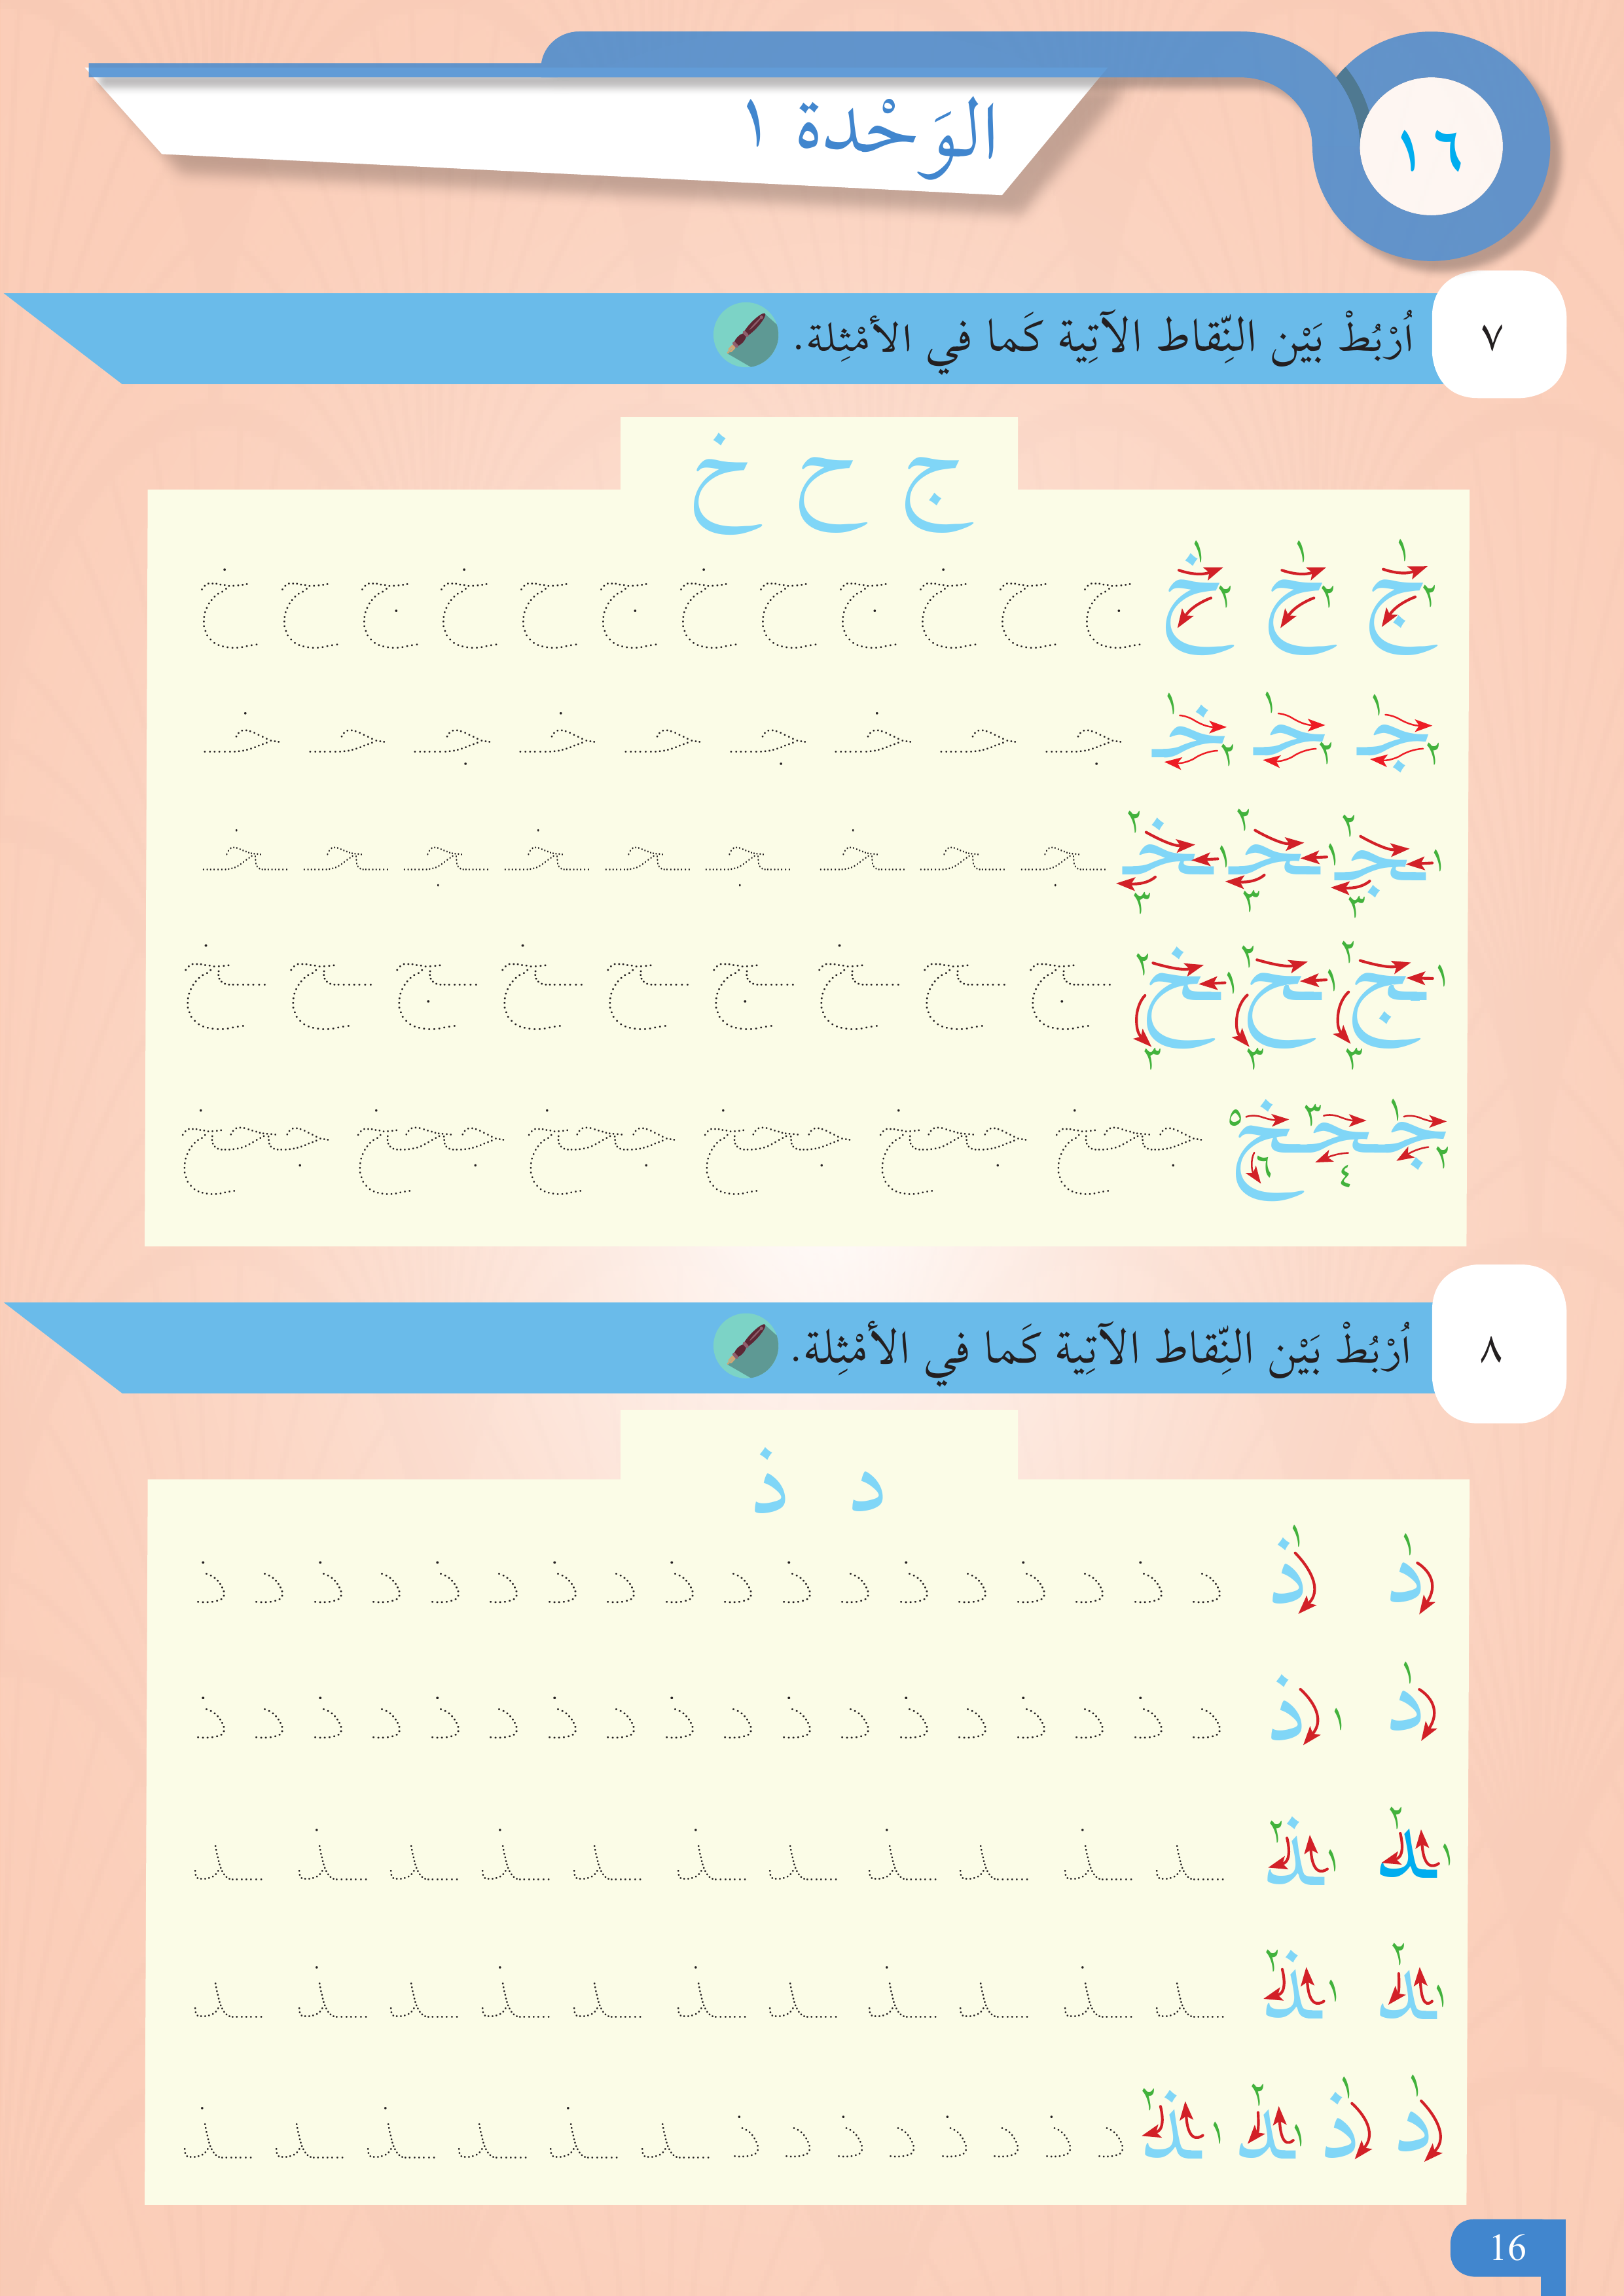 ١٦
الوَحْدة ١
٧
اُرْبُطْ بَيْن النِّقاط الآتِية كَما في الأمْثِلة.
ج ح خ
١ ١ ١
ج ح خ ج ح خ ج ح خ ج ح خ ج ح خ
٢ ٢ ٢
١ ١ ١
جـ حـ خـ جـ حـ خـ جـ حـ خـ جـ حـ خـ
٢ ٢ ٢
٢ ٢ ٢
١ ١ ١
ـجـ ـحـ ـخـ ـجـ ـحـ ـخـ ـجـ ـحـ ـخـ ـجـ ـحـ ـخـ
٣ ٣ ٣
٢ ٢ ٢
١ ١ ١
ـج ـح ـخ ـج ـح ـخ ـج ـح ـخ ـج ـح ـخ
٣ ٣ ٣
١ ٣ ٥
جحخ جحخ جحخ جحخ جحخ جحخ جحخ
٢ ٤ ٦
٨
اُرْبُطْ بَيْن النِّقاط الآتِية كَما في الأمْثِلة.
د ذ
١ ١
د ذ د ذ د ذ د ذ د ذ د ذ د ذ د ذ د ذ د ذ
١ ١
د ذ د ذ د ذ د ذ د ذ د ذ د ذ د ذ د ذ د ذ
٢ ٢
١ ١
ـد ـذ ـد ـذ ـد ـذ ـد ـذ ـد ـذ ـد ـذ ـد
٢ ٢
١ ١
ـد ـذ ـد ـذ ـد ـذ ـد ـذ ـد ـذ ـد ـذ ـد
١ ١ ٢ ٢
١ ١
د ذ ـد ـذ د ذ د ذ د ذ د ذ ـد ـذ ـد ـذ ـد ـذ
16